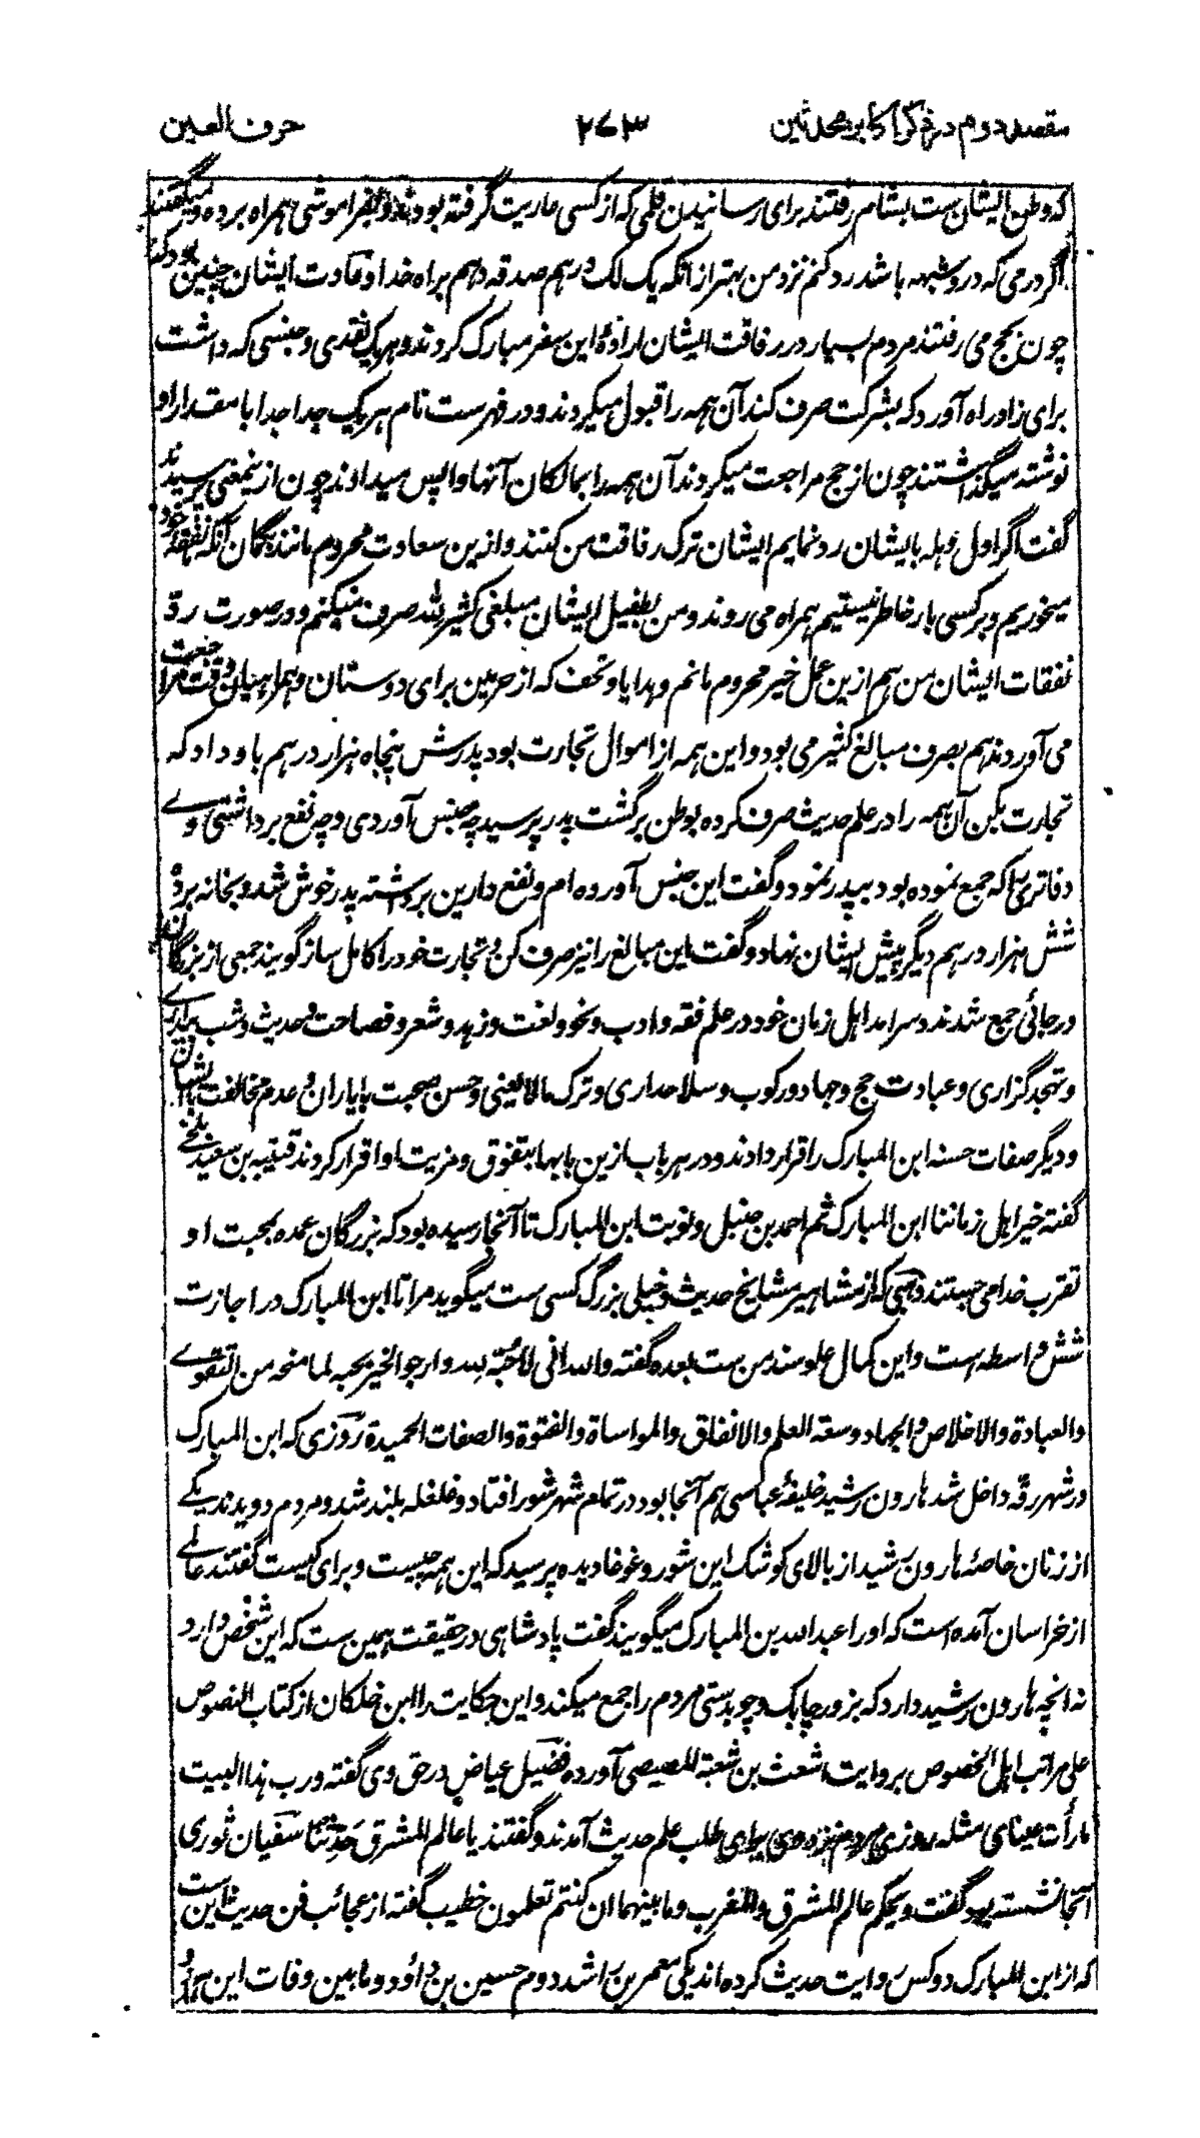 مقصد دوم در ذکر اکابر محدثین ۲۷۳ حرف العین
که وطن ایشان ست بشام رفتند برای رسانیدن قلمی که از کسی عاریت گرفته بودند و بفراموشی همراه برده و میگفتند
اگر درمی که درو شبهه باشد رد کنم نزد من بهتر از آنکه یک لک درهم صدقه دهم براه خدا و عادت ایشان چنین بود که
چون بحج می رفتند مردم بسیار در رفاقت ایشان ارادهٔ این سفر مبارک کردند و هر یک نقدی و جنسی که داشت
برای زاد راه آورد که بشرکت صرف کند آن همه را قبول میکردند و در فهرست نام هر یک جدا جدا با مقدار او
نوشته میگذاشتند چون از حج مراجعت میکردند آن همه را بمالکان آنها واپس میدادند چون ازینمعنی پرسیدند
گفت اگر اول وهله بایشان رد نمایم ایشان ترک رفاقت من کنند و ازین سعادت محروم مانند بگمان آنکه نفقهٔ خود
میخوریم و بر کسی بار خاطر نیستیم همراه می روند و من بطفیل ایشان مبلغی کثیر لله صرف میکنم و در صورت رد
نفقات ایشان من هم ازین عمل خیر محروم مانم و هدایا و تحف که از حرمین برای دوستان و همراهیان وقت مراجعت
می آوردند هم بصرف مبالغ کثیر می بود و این همه از اموال تجارت بود پدرش پنجاه هزار درهم باو داد که
تجارت بکن آن همه را در علم حدیث صرف کرده بوطن برگشت پدر پرسید چه جنس آوردی و چه نفع برداشتی وے
دفاتری را که جمع نموده بود بپدر نمود و گفت این جنس آورده ام و نفع دارین برداشته پدر خوش شد و بخانه برد و
شش هزار درهم دیگر پیش ایشان نهاد و گفت این مبالغ را نیز صرف کن و تجارت خود را کامل ساز گویند جمعی از بزرگان
در جائی جمع شدند و سرامد اهل زمان خود در علم فقه و ادب و نحو و لغت و زهد و شعر و فصاحت و حدیث و شب بیداری
و تهجد گزاری و عبادت حج و جهاد و رکوب و سلاحداری و ترک مالایعنی و حسن صحبت با یاران و عدم مخالفت بایشان
و دیگر صفات حسنه ابن المبارک را قرار دادند و در هر باب ازین بابها بتفوق و مزیت او اقرار کردند قتیبه بن سعید بلخی
گفته خیر اهل زماننا ابن المبارک ثم احمد بن حنبل و نوبت ابن المبارک تا آنجا رسیده بود که بزرگان عمده بمحبت او
تقرب خدا می جستند ذهبی که از مشاهیر مشایخ حدیث و خیلی بزرگ کسی ست میگوید مرا تا ابن المبارک در اجازت
شش واسطه است و این کمال علو سند من ست بعده گفته والله انی لاحبه لله و ارجو الخیر بحبه لما منحه من التقوے
والعبادة والاخلاص والجهاد وسعة العلم والاتقان والمواساة والفتوة والصفات الحمیدة روزی که ابن المبارک
در شهر رقّه داخل شد هارون رشید خلیفهٔ عباسی هم آنجا بود در تمام شهر شور افتاد و غلغله بلند شد و مردم دویدند یکے
از زنان خاصهٔ هارون رشید از بالای کوشک این شور و غوغا دیده پرسید که این همه چیست و برای کیست گفتند عالمے
از خراسان آمده است که او را عبد الله بن المبارک میگویند گفت پادشاهی در حقیقت همین ست که این شخص دارد
نه انچه هارون رشید دارد که بزور چابک و چوبدستی مردم را جمع میکند و این حکایت را ابن خلکان از کتاب النصوص
علی مراتب اهل الخصوص بروایت اشعث بن شعبة المصیصی آورده فضیل عیاض در حق وی گفته ورب هذا البیت
ما رأت عینای مثله روزی مردم برای طلب علم حدیث آمدند و گفتند یا عالم المشرق حدثنا سفیان ثوری
آنجا نشسته بود گفت ویحکم عالم المشرق والمغرب وما بینهما ان کنتم تعلمون خطیب گفته از عجائب فن حدیث این ست
که از ابن المبارک دو کس روایت حدیث کرده اند یکی معمر بن راشد دوم حسین بن داؤد و ما بین وفات این هر دو